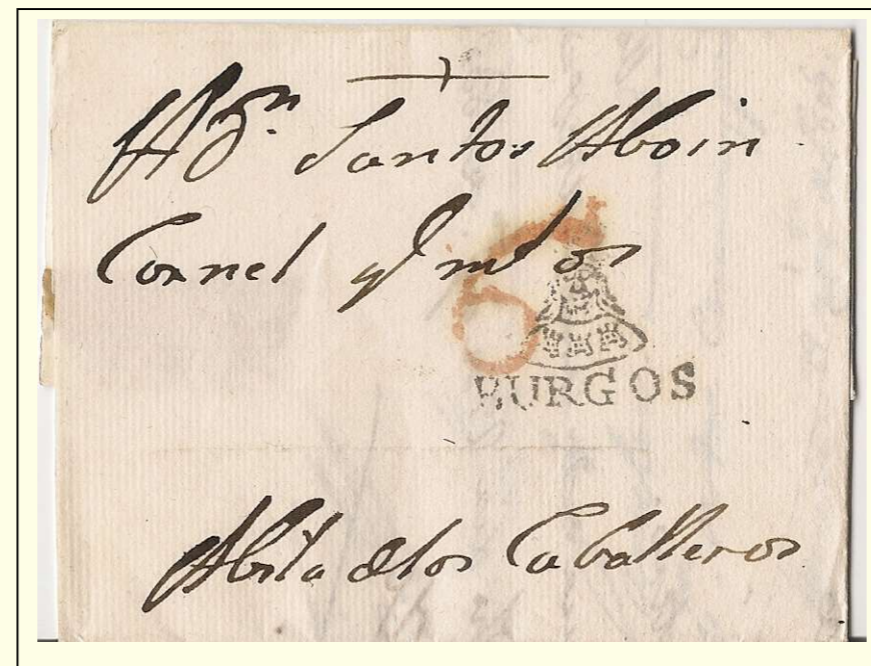 A Dn Santos Aboin
Coronel y Intor
BURGOS
Abila de los Caballeros